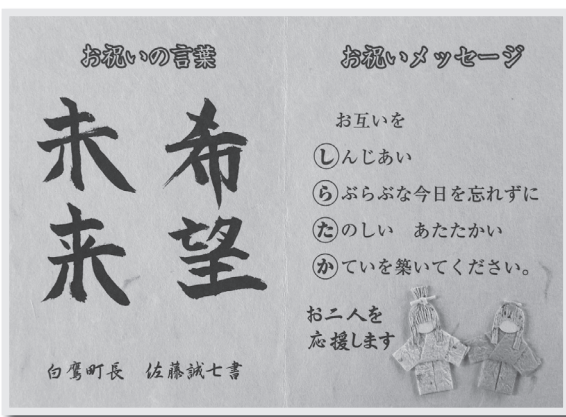 お祝いの言葉
希望
未来
白鷹町長 佐藤誠七書
お祝いメッセージ
お互いを
しんじあい
らぶらぶな今日を忘れずに
たのしい あたたかい
かていを築いてください。
お二人を
応援します